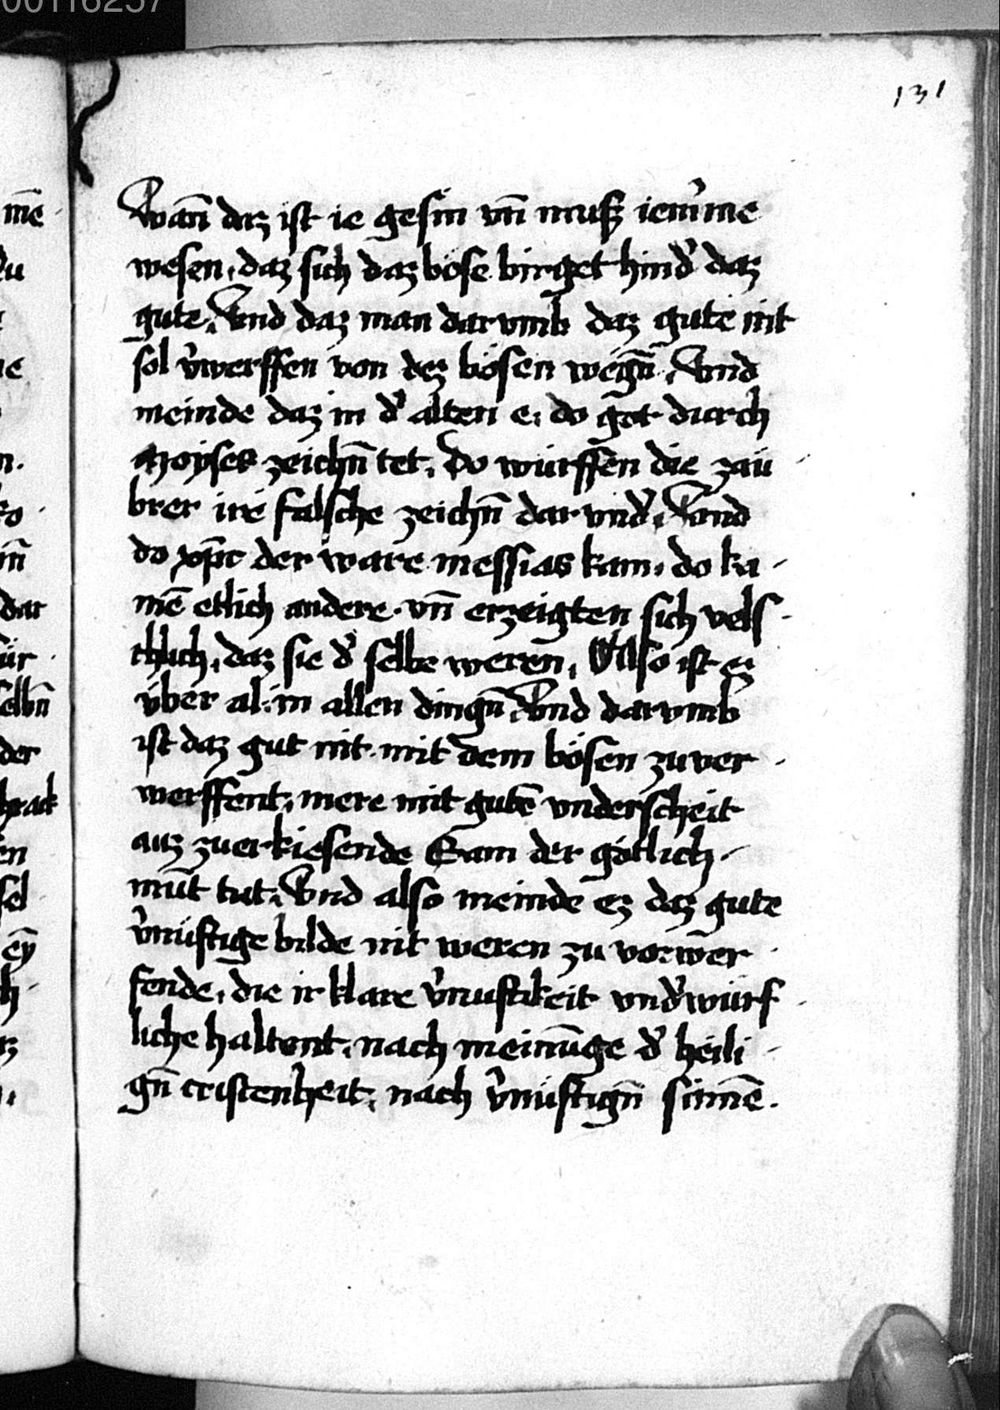 131
Wañ daz ist ie gesin vñ muß iem̉me
wesen, daz sich daz böse birget hind̉ daz
gute, Vnd daz man dar vmb daz gute nit
sol v̉werffen von dez bösen wegñ, Vnd
meinde daz in d̉ alten e, do got durch
Moyses zeichñ tet, Do würffen die zaü
brer ire falsche zeichñ dar vnd̉, Vnd
do xp̄c der ware messias kam, do ka
mē etlich andere, vñ erzeigten sich vels
chlich, daz sie d̉ selbe weren, Also ist ez
über al in allen dingñ, Vnd dar vmb
ist daz gut nit mit dem bösen zu ver
werffent, mere mit gutē vnderscheit
auz zu erkiesende Sam der götlich
mūt tut, Vnd also meinde ez daz gute
v̉nüftige bilde nit weren zu vorwer
fende, die ir klare v̉nuftikeit vnd̉würf
liche haltent, nach meinūge d̉ heili
gñ cristenheit, nach v̉nüftigñ sinnē.